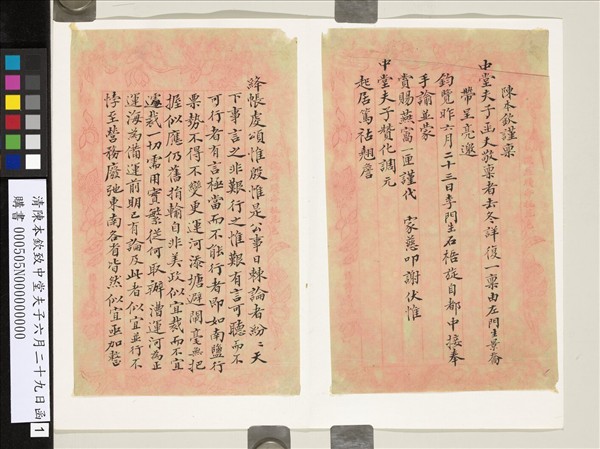 陳本欽謹稟
中堂夫子函丈敬稟者去冬詳復一稟由左門生景喬
帶呈亮邀
鈞覽昨六月二十三日李門生石梧旋自都中接奉
手諭並蒙
賞賜燕窩一匣謹代 家慈叩謝伏惟
中堂夫子贊化調元
起居篤祜翹詹
絳帳虔頌惟殷惟是公事日棘論者紛紛天
下事言之非艱行之惟艱有言可聽而不
可行者有言極當而不能行者即如南鹽行
票勢不得不變更運河添塘避閘毫無把
握似應仍舊捐輸自非美政似宜裁而不宜
遽裁一切需用實繁從何取辦漕運河為正
運海為備運前期已有論及此者似宜並行不
悖至營務廢弛東南各省皆然似宜亟加整
清陳本欽致中堂夫子六月二十九日函
購書 000505N000000000
1